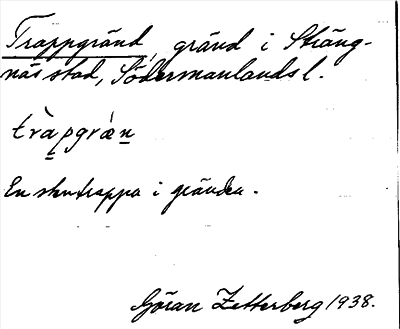 Trappgränd, gränd i Sträng-
näs stad, Södermanlands l.
tràpgrǽn
En stentrappa i gränden.
Göran Zetterberg 1938.